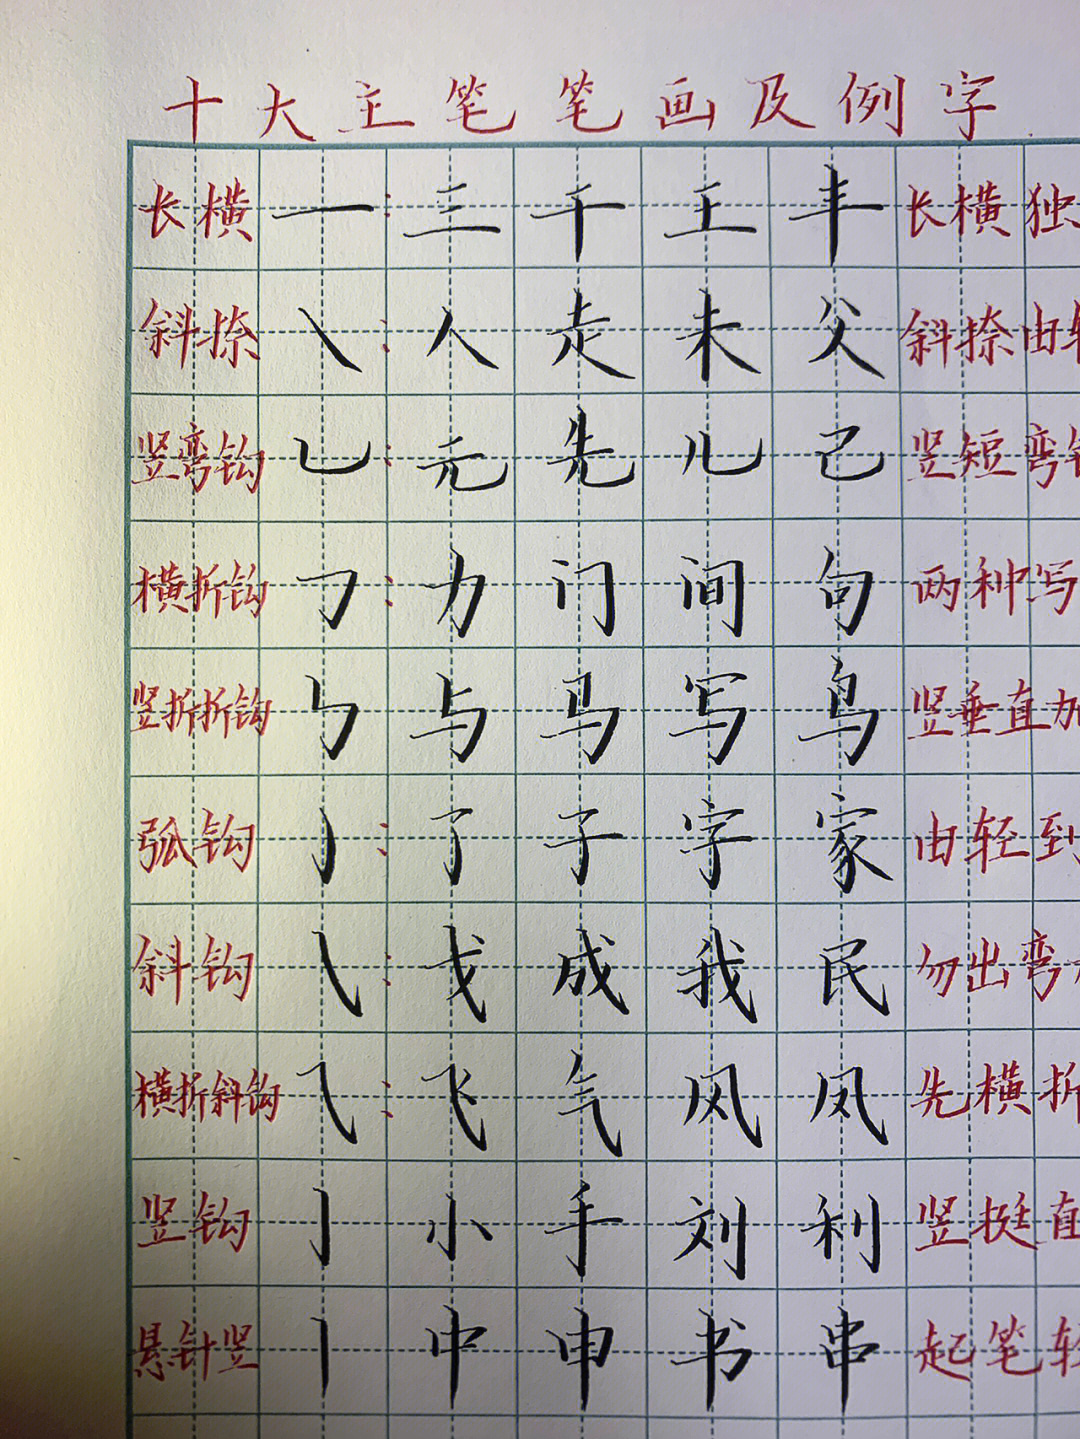 十大主笔笔画及例字
长横 一：三 干 王 丰 长横独
斜捺 ㇏：人 走 未 父 斜捺由轻
竖弯钩 乚：元 先 儿 己 竖短弯钩
横折钩 𠃌：力 门 间 句 两种写
竖折折钩 ㇉：与 马 写 鸟 竖垂直加
弧钩 ㇁：了 子 字 家 由轻到
斜钩 ㇂：戈 成 我 民 勿出弯
横折斜钩 ⺄：飞 气 风 凤 先横折
竖钩 亅 小 手 刘 利 竖挺直
悬针竖 丨 中 申 书 串 起笔轻